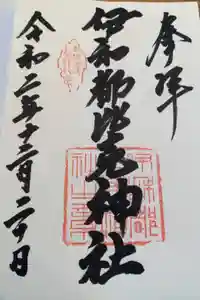 奉拝
伊和都比売神社
令和二年十二月二十日